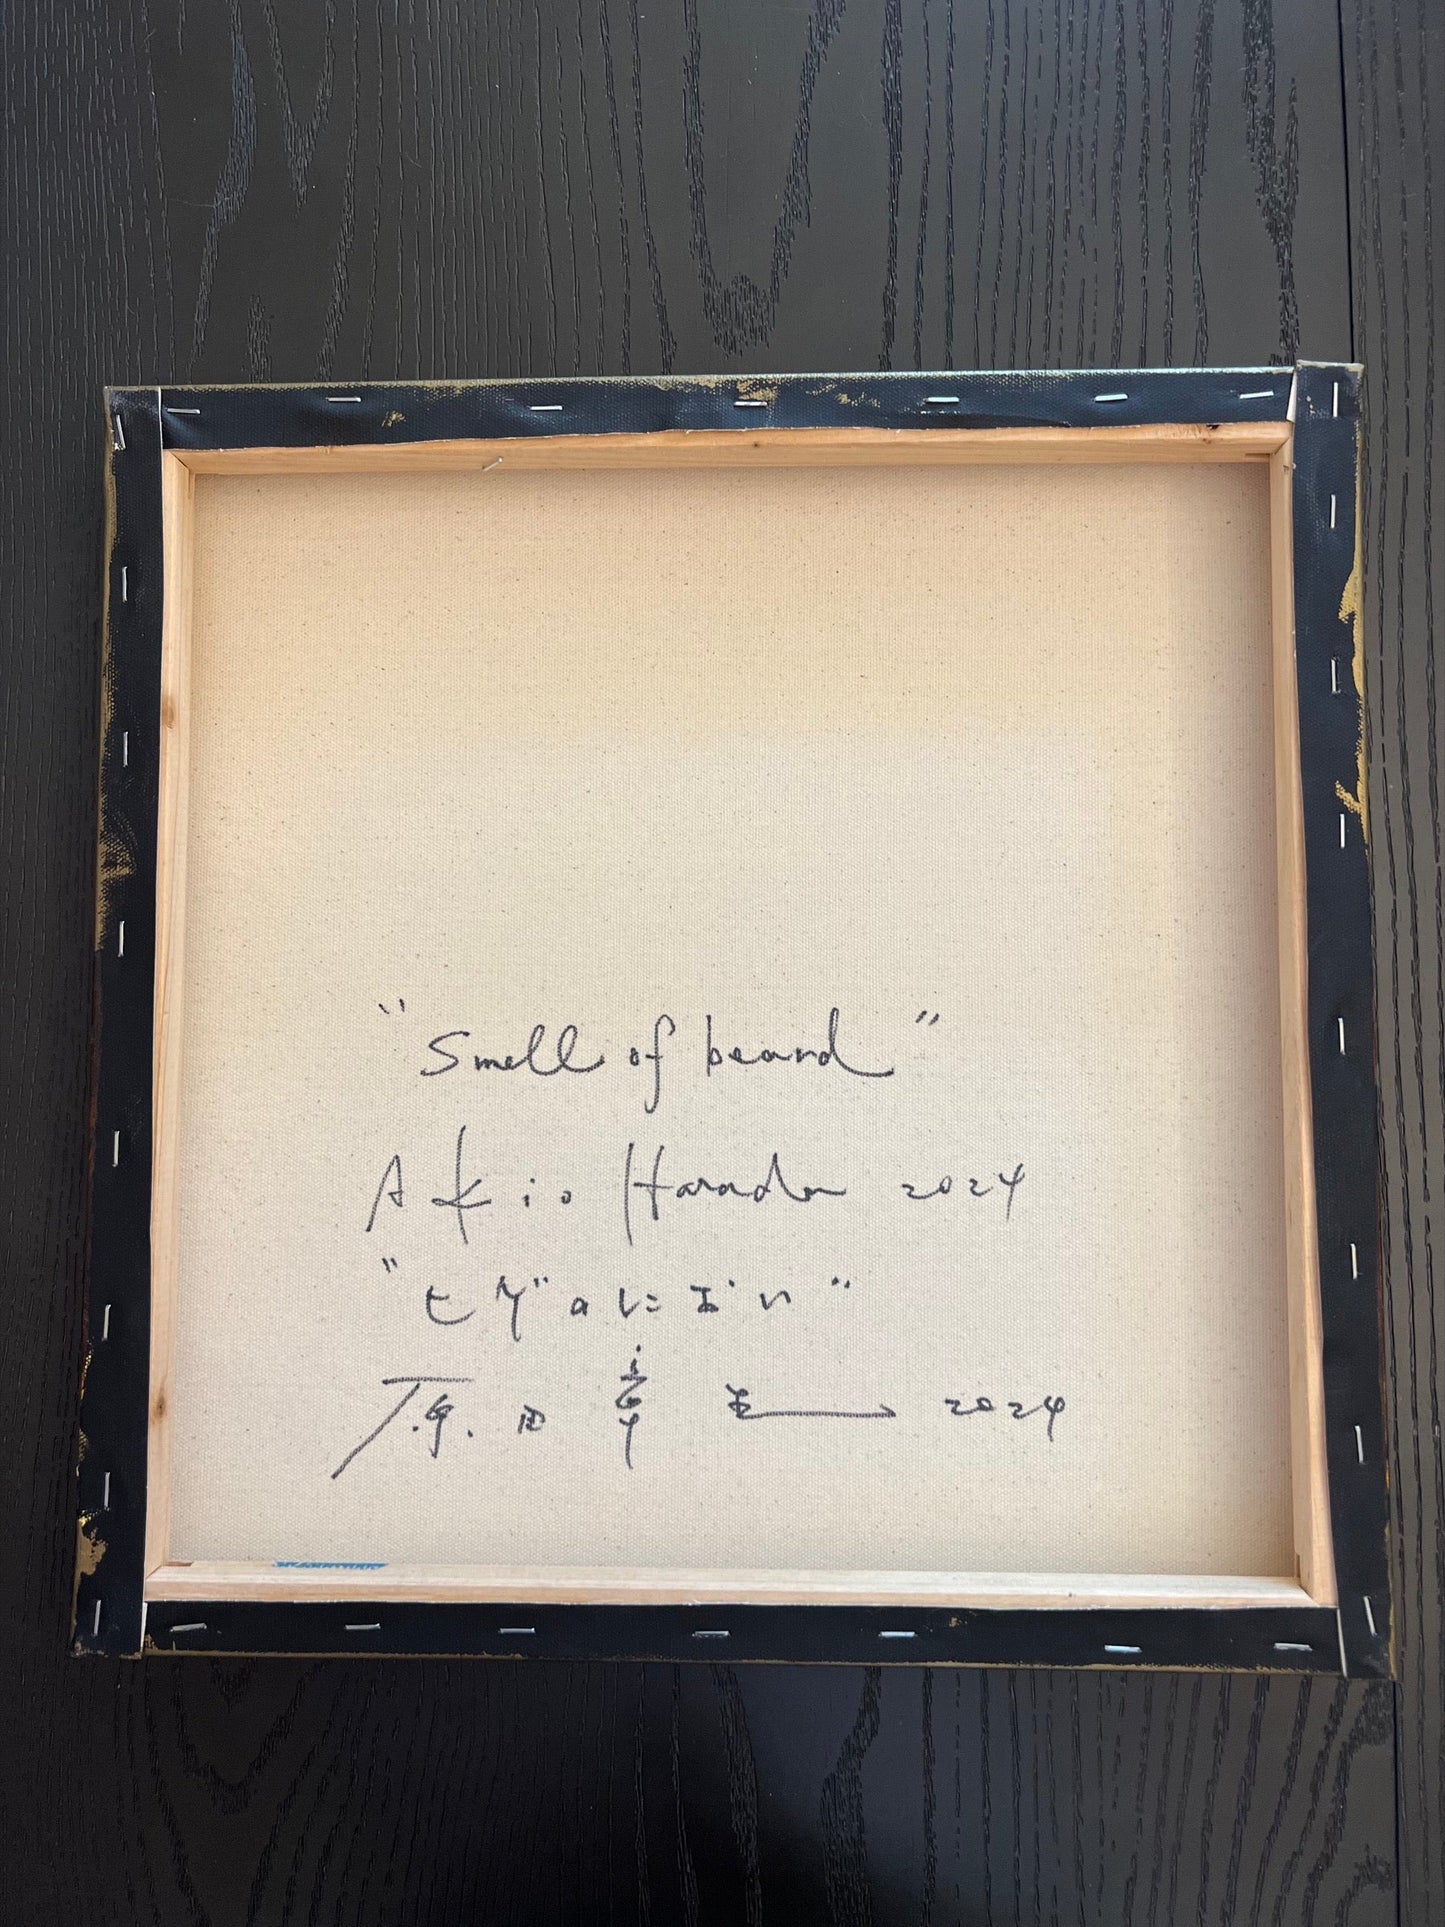 "Smell of beard"
Akio Harada 2024
"ヒゲのにおい"
原田章生 2024